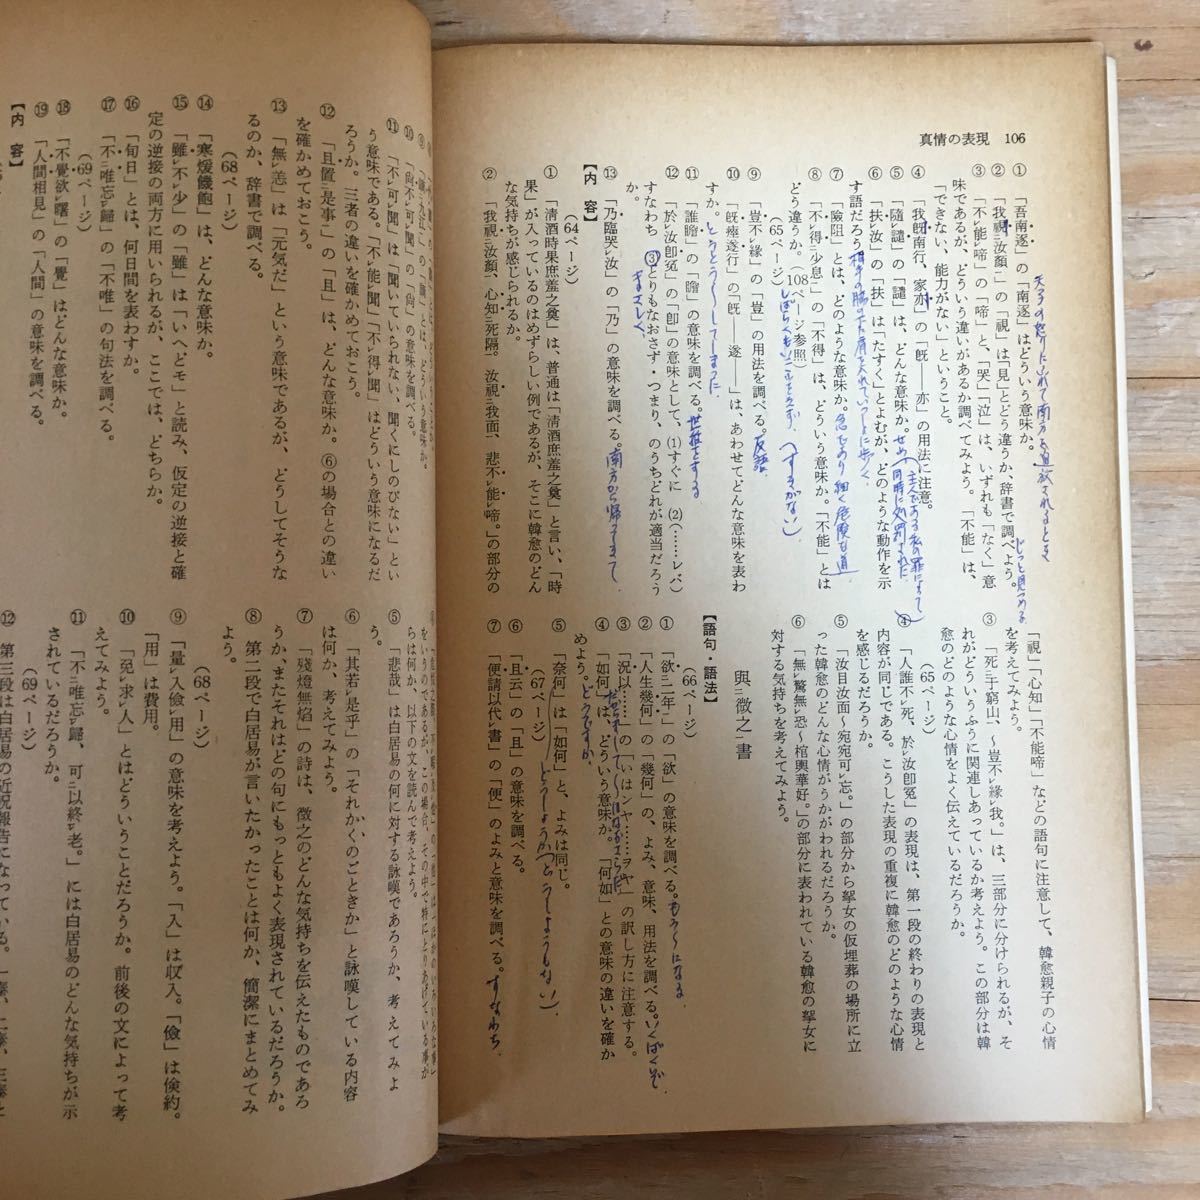 真情の表現 106
① 「吾南逐」の「南逐」はどういう意味か。
天子の怒りにふれて南方に追放されるとき
② 「我視ニ汝顔」の「視」は「見」とどう違うか、辞書で調べよう。
じっと見つめる
③ 「不レ能レ啼」の「啼」と、「哭」「泣」は、いずれも「なく」意
味であるが、どういう違いがあるか調べてみよう。「不能」は、
「できない、能力がない」ということ。
④ 「我既南行、家亦」の「既―亦」の用法に注意。
⑤ 「隨レ譴」の「譴」は、どんな意味か。
⑥ 「扶レ汝」の「扶」は「たすく」とよむが、どのような動作を示
す語だろう
⑦ 「險阻」とは、どのような意味か。
⑧ 「不レ得ニ少息」の「不得」は、どういう意味か。「不能」とは
どう違うか。(108ページ参照)
(65ページ)
⑨ 「豈不レ緣」の「豈」の用法を調べる。反語
⑩ 「旣瘞遂行」の「旣――遂――」は、あわせてどんな意味を表わ
すか。
⑪ 「誰瞻」の「瞻」の意味を調べる。世話をする
⑫ 「於レ汝卽冤」の「卽」の意味として、(1)すぐに (2)(……レバ)
すなわち ③とりもなおさず・つまり、のうちどれが適当だろう
か。
まさしく
⑬ 「乃臨哭レ汝」の「乃」の意味を調べる。南方から帰ってきて
【内 容】
(64ページ)
① 「清酒時果庶羞之奠」は、普通は「清酒庶羞之奠」と言い、「時
果」が入っているのはめずらしい例であるが、そこに韓愈のどん
な気持ちが感じられるか。
② 「我視ニ汝顔、心知ニ死隔。汝視ニ我面、悲不レ能レ啼。」の部分の
「視」「心知」「不能啼」などの語句に注意して、韓愈親子の心情
を考えてみよう。
③ 「死ニ于窮山、~豈不レ緣レ我。」は、三部分に分けられるが、そ
れがどういうふうに関連しあっているか考えよう。この部分は韓
愈のどのような心情をよく伝えているだろうか。
(65ページ)
④ 「人誰不レ死、於レ汝卽冤」の表現は、第一段の終わりの表現と
内容が同じである。こうした表現の重複に韓愈のどのような心情
を感じるだろうか。
⑤ 「汝目汝面~宛宛可レ忘。」の部分から挐女の仮埋葬の場所に立
った韓愈のどんな心情がうかがわれるだろうか。
⑥ 「無レ驚無レ恐~棺輿華好。」の部分に表われている韓愈の挐女に
対する気持ちを考えてみよう。
與ニ微之ニ書
【語句・語法】
(66ページ)
① 「欲ニ二年」の「欲」の意味を調べる。
② 「人生幾何」の「幾何」の、よみ、意味、用法を調べる。いくばくぞ
③ 「况以……」の「いはンヤ……ヲヤ」の訳し方に注意する。
④ 「如何」は、どういう意味か。「何如」との意味の違いを確か
めよう。どうですか
⑤ 「奈何」は「如何」と、よみは同じ。
(67ページ)
⑥ 「且云」の「且」の意味を調べる。
⑦ 「便請以代レ書」の「便」のよみと意味を調べる。すなわち
⑩ 「尙不レ可レ聞」の「尙」の意味を調べる。
⑪ 「不レ可レ聞」は「聞いていられない、聞くにしのびない」とい
う意味である。「不レ能レ聞」「不レ得レ聞」はどういう意味になるだ
ろうか。三者の違いを確かめておこう。
⑫ 「且置ニ是事」の「且」は、どんな意味か。⑥の場合との違い
を確かめておこう。
⑬ 「無レ恙」は「元気だ」という意味であるが、どうしてそうな
るのか、辞書で調べる。
(68ページ)
⑭ 「寒煖饑飽」は、どんな意味か。
⑮ 「雖レ不レ少」の「雖」は「いへどモ」と読み、仮定の逆接と確
定の逆接の両方に用いられるが、ここでは、どちらか。
⑯ 「旬日」とは、何日間を表わすか。
⑰ 「不ニ唯忘レ歸」の「不唯」の句法を調べる。
(69ページ)
⑱ 「不レ覺欲レ曙」の「覺」はどんな意味か。
⑲ 「人間相見」の「人間」の意味を調べる。
【内 容】
⑤ 「悲哉」は白居易の何に対する詠嘆であろうか、考えてみよ
う。
⑥ 「其若レ是乎」の「それかくのごときか」と詠嘆している内容
は何か、考えてみよう。
⑦ 「殘燈無レ焰」の詩は、微之のどんな気持ちを伝えたものであろ
うか、またそれはどの句にもっともよく表現されているだろうか。
⑧ 第二段で白居易が言いたかったことは何か、簡潔にまとめてみ
よう。
(68ページ)
⑨ 「量レ入儉レ用」の意味を考えよう。「入」は収入。「儉」は倹約。
「用」は費用。
⑩ 「免レ求レ人」とはどういうことだろうか。前後の文によって考
えてみよう。
⑪ 「不ニ唯忘レ歸、可ニ以終レ老。」には白居易のどんな気持ちが示
されているだろうか。
(69ページ)
⑫ 第三段は白居易の近況報告になっている。